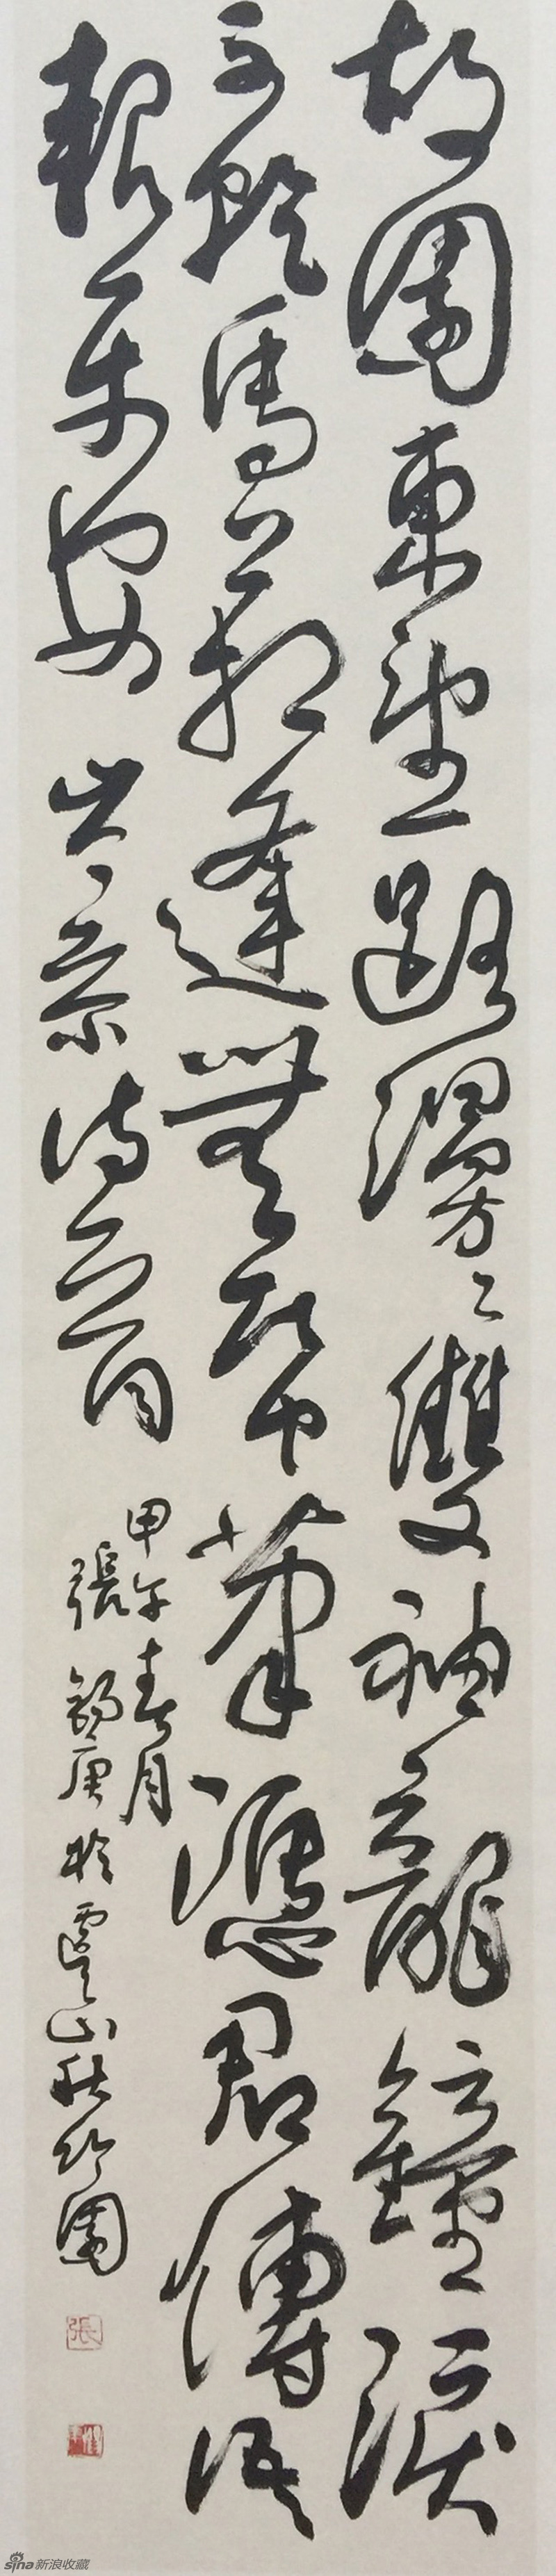 故園東望路漫〻雙袖龍鐘淚
不乾馬上相逢無帋筆憑君傳語
報平安 岑參詩一首
甲午春月
張錫庚於虞山秋竹園
張
sina新浪收藏